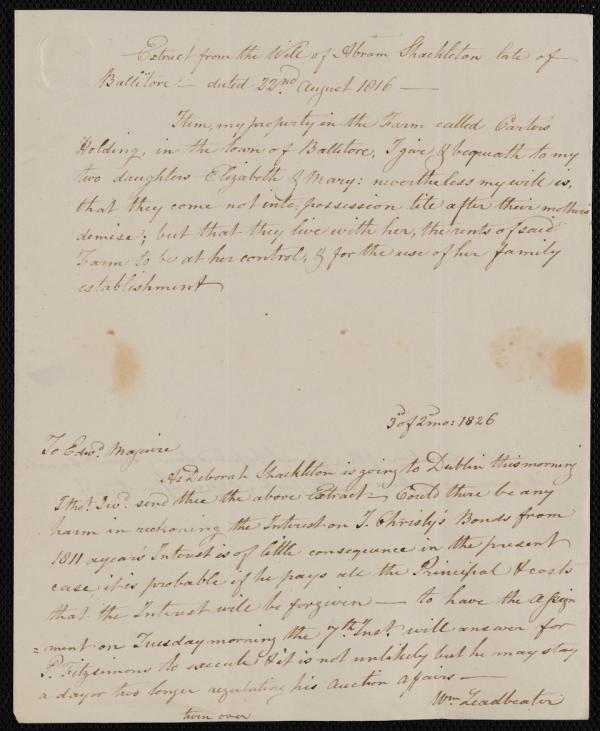 Extract from the Will of Abram Shackleton late of
Ballitore — dated 22nd August 1816 —
Item, my property in the Farm called Carter's
Holding, in the town of Ballitore, I give & bequeath to my
two daughters Elizabeth & Mary: nevertheless my will is,
that they come not into possession till after their mother's
demise; but that they live with her, the rents of said
Farm to be at her control, & for the use of her family
establishment
3d of 2mo: 1826
To Edwd. Maguire
As Deborah Shackleton is going to Dublin this morning
I thot. I wd. send thee the above Extract — Could there be any
harm in reckoning the Interest on J. Christy's Bonds from
1811 a year's Interest is of little consequence in the present
case, it is probable if he pays all the Principal & costs
that the Interest will be forgiven — to have the assign
=ment on Tuesday morning the 7th. Inst. will answer for
P. Fitzsimons to execute & it is not unlikely but he may stay
a day or two longer regulating his Auction affairs —
Wm. Leadbeater
turn over